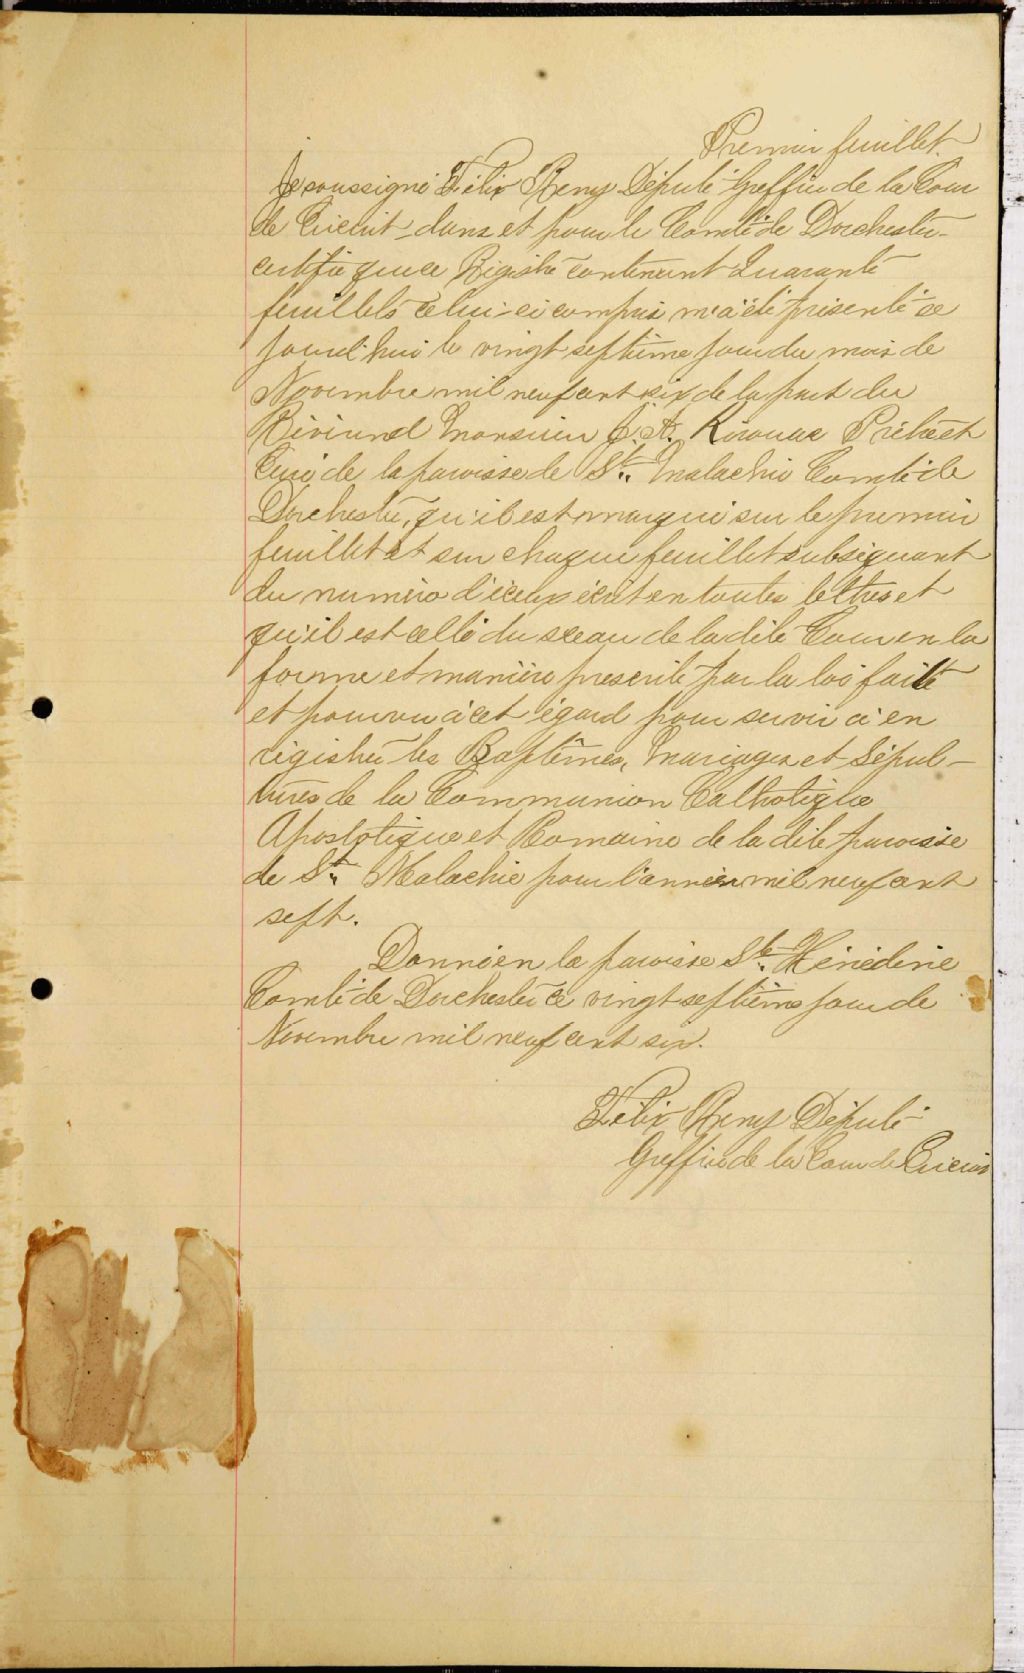 Premier feuillet.
Je soussigné Félix Remy Député Greffier de la Cour
de Circuit dans et pour le Comté de Dorchester
certifie que ce Régistre contenant Quarante
feuillets celui-ci compris m'a été présenté ce
jourd'hui le vingt septième jour du mois de
Novembre mil neuf cent six de la part du
Révérend Monsieur J. A. Kirouac Prêtre et
Curé de la paroisse de St. Malachie Comté de
Dorchester, qu'il est marqué sur le premier
feuillet et sur chaque feuillet subséquent
du numéro d'iceux écrit en toutes lettres et
qu'il est cellé du sceau de la dite Cour en la
forme et manière prescrite par la loi faite
et pourvu à cet égard pour servir à en
régistrer les Baptêmes, Mariages et Sépul-
tures de la Communion Catholique
Apostolique et Romaine de la dite paroisse
de St. Malachie pour l'année mil neuf cent
sept.
Donné en la paroisse Ste. Hénédine
Comté de Dorchester ce vingt septième jour de
Novembre mil neuf cent six.
Félix Remy Député
Greffier de la Cour de Circuit